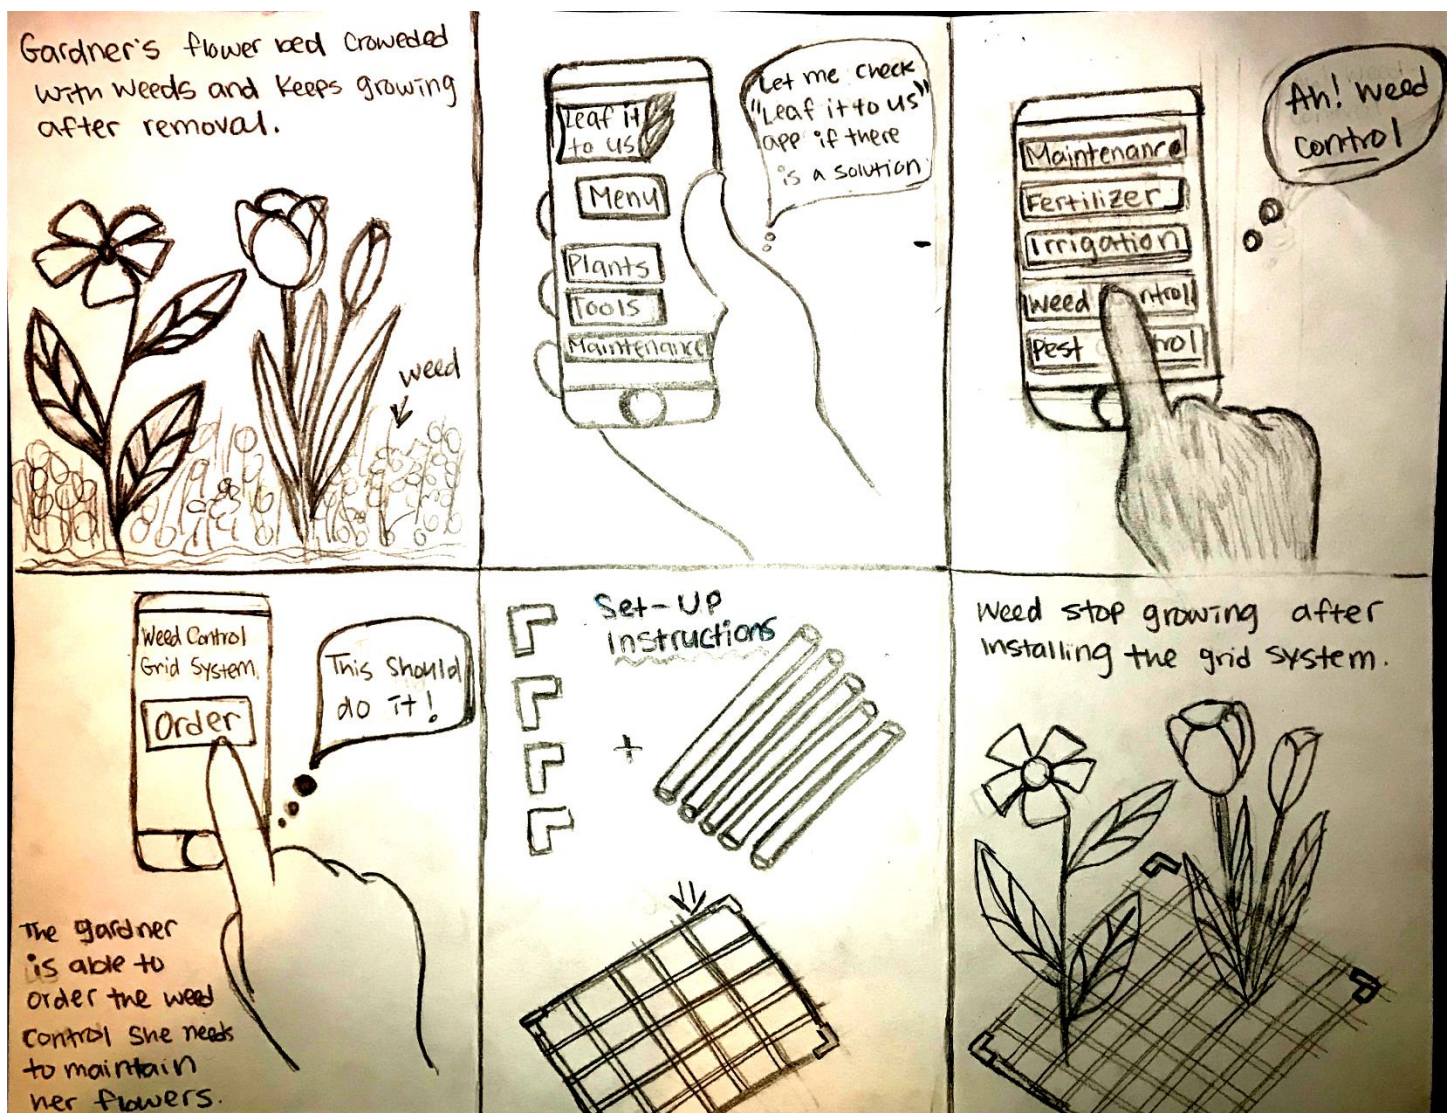 Gardner's flower bed Croweded
with weeds and keeps growing
after removal.
weed
Leaf it
to us
Menu
Plants
Tools
Maintenance
Let me check
"Leaf it to us"
app if there
is a solution
Maintenance
Fertilizer
Irrigation
Weed ntrol
Pest trol
Ah! Weed
control
Weed Control
Grid System
Order
This should
do it!
The gardner
is able to
order the weed
control she needs
to maintain
her flowers.
Set-UP
Instructions
+
Weed stop growing after
installing the grid system.